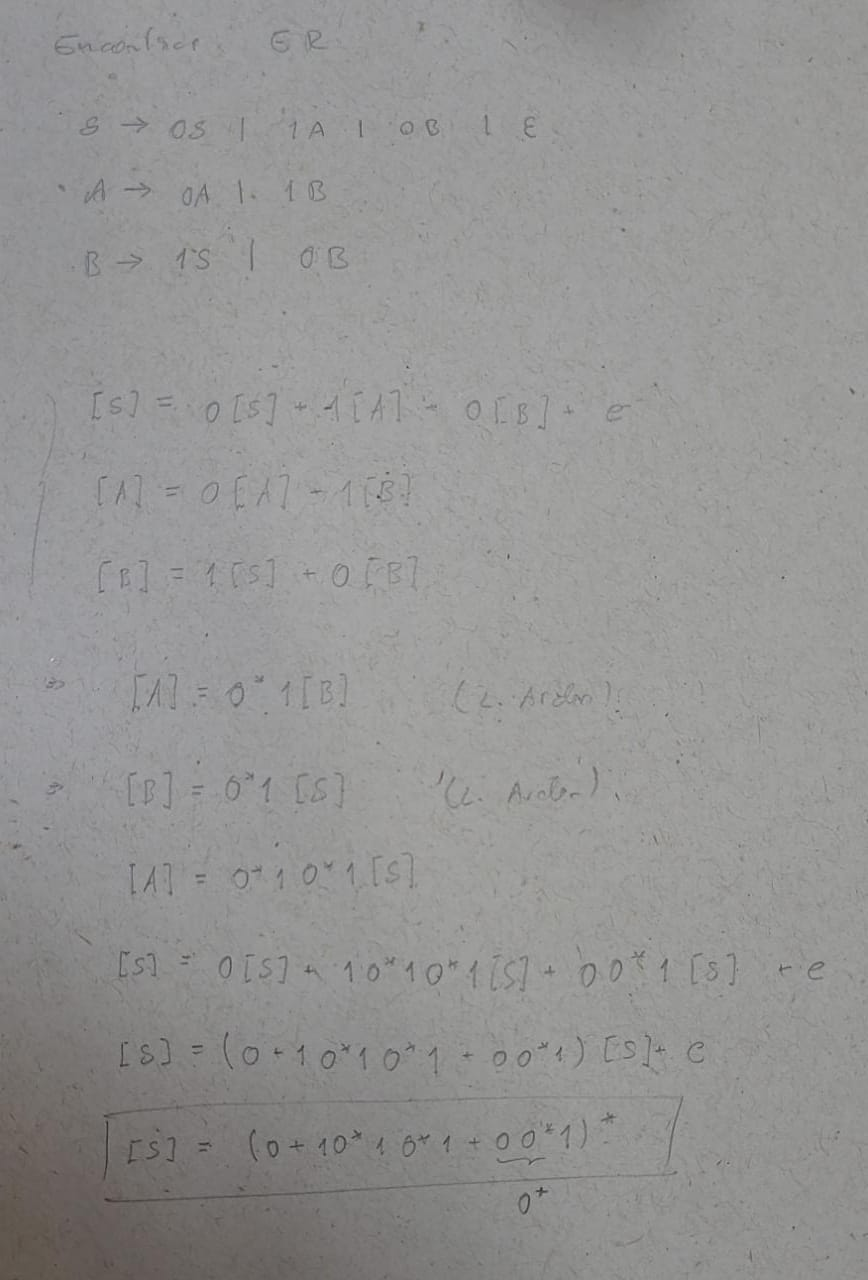 Encontrar ER
S → 0S | 1A | 0B | ε
A → 0A | 1B
B → 1S | 0B
[S] = 0[S] + 1[A] + 0[B] + e
[A] = 0[A] + 1[B]
[B] = 1[S] + 0[B]
⇒ [A] = 0* 1[B] (L. Arden).
⇒ [B] = 0*1 [S] (L. Arden).
[A] = 0*1 0*1[S]
[S] = 0[S] + 10*10*1[S] + 00*1[S] + e
[S] = (0 + 10*10*1 + 00*1)[S] + e
[S] = (0 + 10*10*1 + 00*1)*
0+